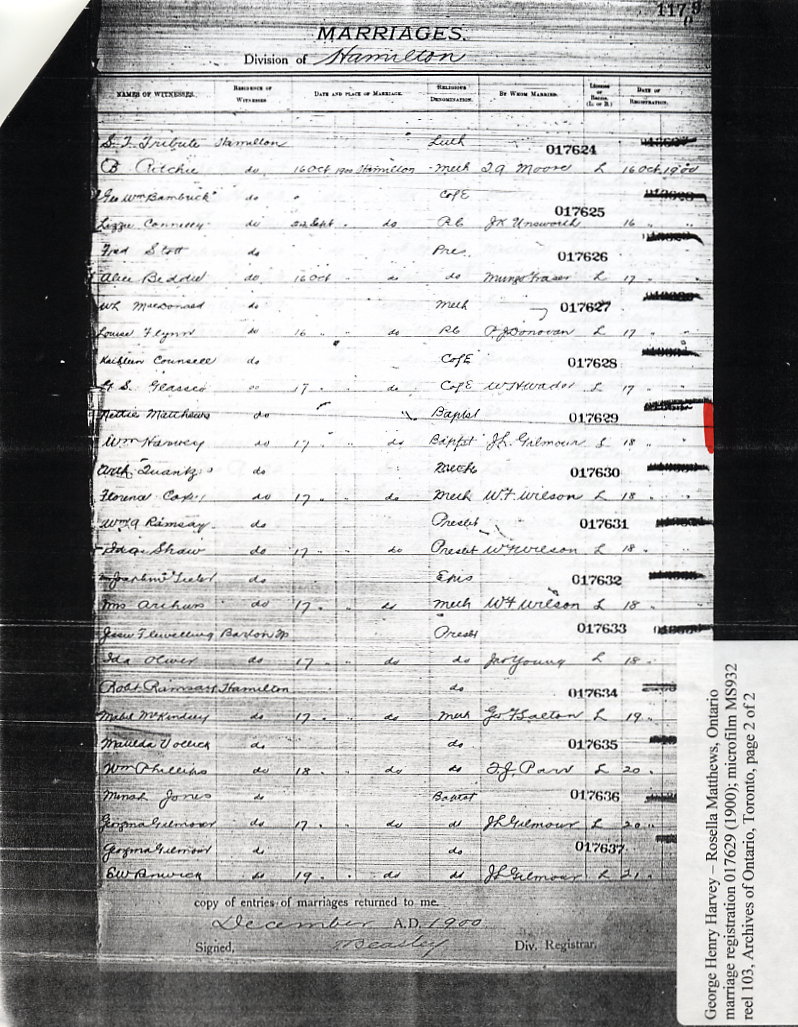 1179
MARRIAGES.
Division of Hamilton
NAMES OF WITNESSES. RESIDENCE OF WITNESSES DATE AND PLACE OF MARRIAGE. RELIGIOUS DENOMINATION. BY WHOM MARRIED. LICENSE OR BANNS. (L. OR B.) DATE OF REGISTRATION.
S. F. Tribute Hamilton Luth 017624
B Ritchie do 16 Oct 1900 Hamilton Meth T. A Moore L 16 Oct 1900
Geo Wm Bambrick do " CofE 017625
Lizzie Connelly do 22 Sept " do RC JK Unsworth 16 "
Fred Stott do Pres 017626
Alice Beddie do 16 Oct " do do Mungo Fraser L 17 "
Wl MacDonald do Meth 017627
Louise Flynn do 16 " " do RC P. J Donovan L 17 "
Kathleen Counsell do CofE 017628
S. Glassco do 17 " do CofE L 17 "
Nettie Matthews do Baptst 017629
Wm Harvey do 17 " do Baptst JL Gilmour L 18 "
Quantz do 017630
Florence do 17 " " do Meth W. F. Wilson L 18 "
Wm A Ramsay do Presbt 017631
Shaw do 17 " do Presbt W F Wilson L 18 "
do Epis 017632
Mrs Arthurs do 17 " do Meth W F Wilson L 18 "
Jessie Flewelling Barton Presbt 017633
Ida Oliver do 17 " do do Jno Young L 18 "
Robt Ramsay Hamilton do 017634
Mabel McKindley do 17 " do Meth Geo F Salton L 19 "
Matilda Vollick do do 017635
Wm Phillips do 18 " do do L 20 "
Minah Jones do Baptst 017636
Gilmour do 17 " " do do JL Gilmour L 20 "
Gilmour do do 017637
do 19 " do do JL Gilmour L 21 "
copy of entries of marriages returned to me.
December A.D. 1900
Signed, Beasley Div. Registrar.
George Henry Harvey – Rosella Matthews, Ontario
marriage registration 017629 (1900); microfilm MS932
reel 103, Archives of Ontario, Toronto, page 2 of 2